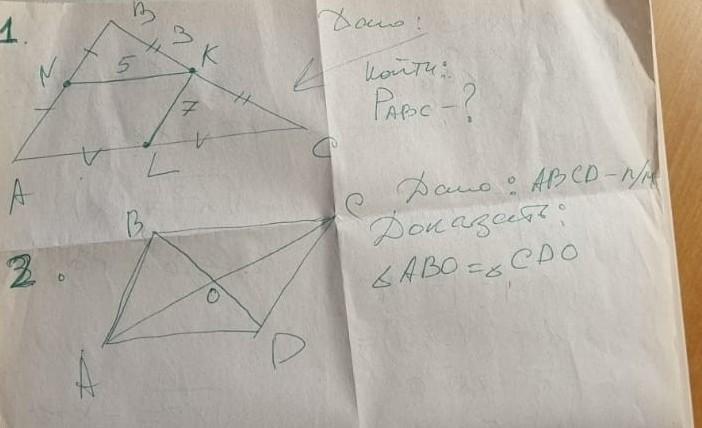 1.
B
3
N
5
K
7
A
L
C
Дано:
Найти:
P ABC - ?
2.
B
C
O
A
D
Дано: ABCD - п/м
Доказать:
△ABO = △CDO